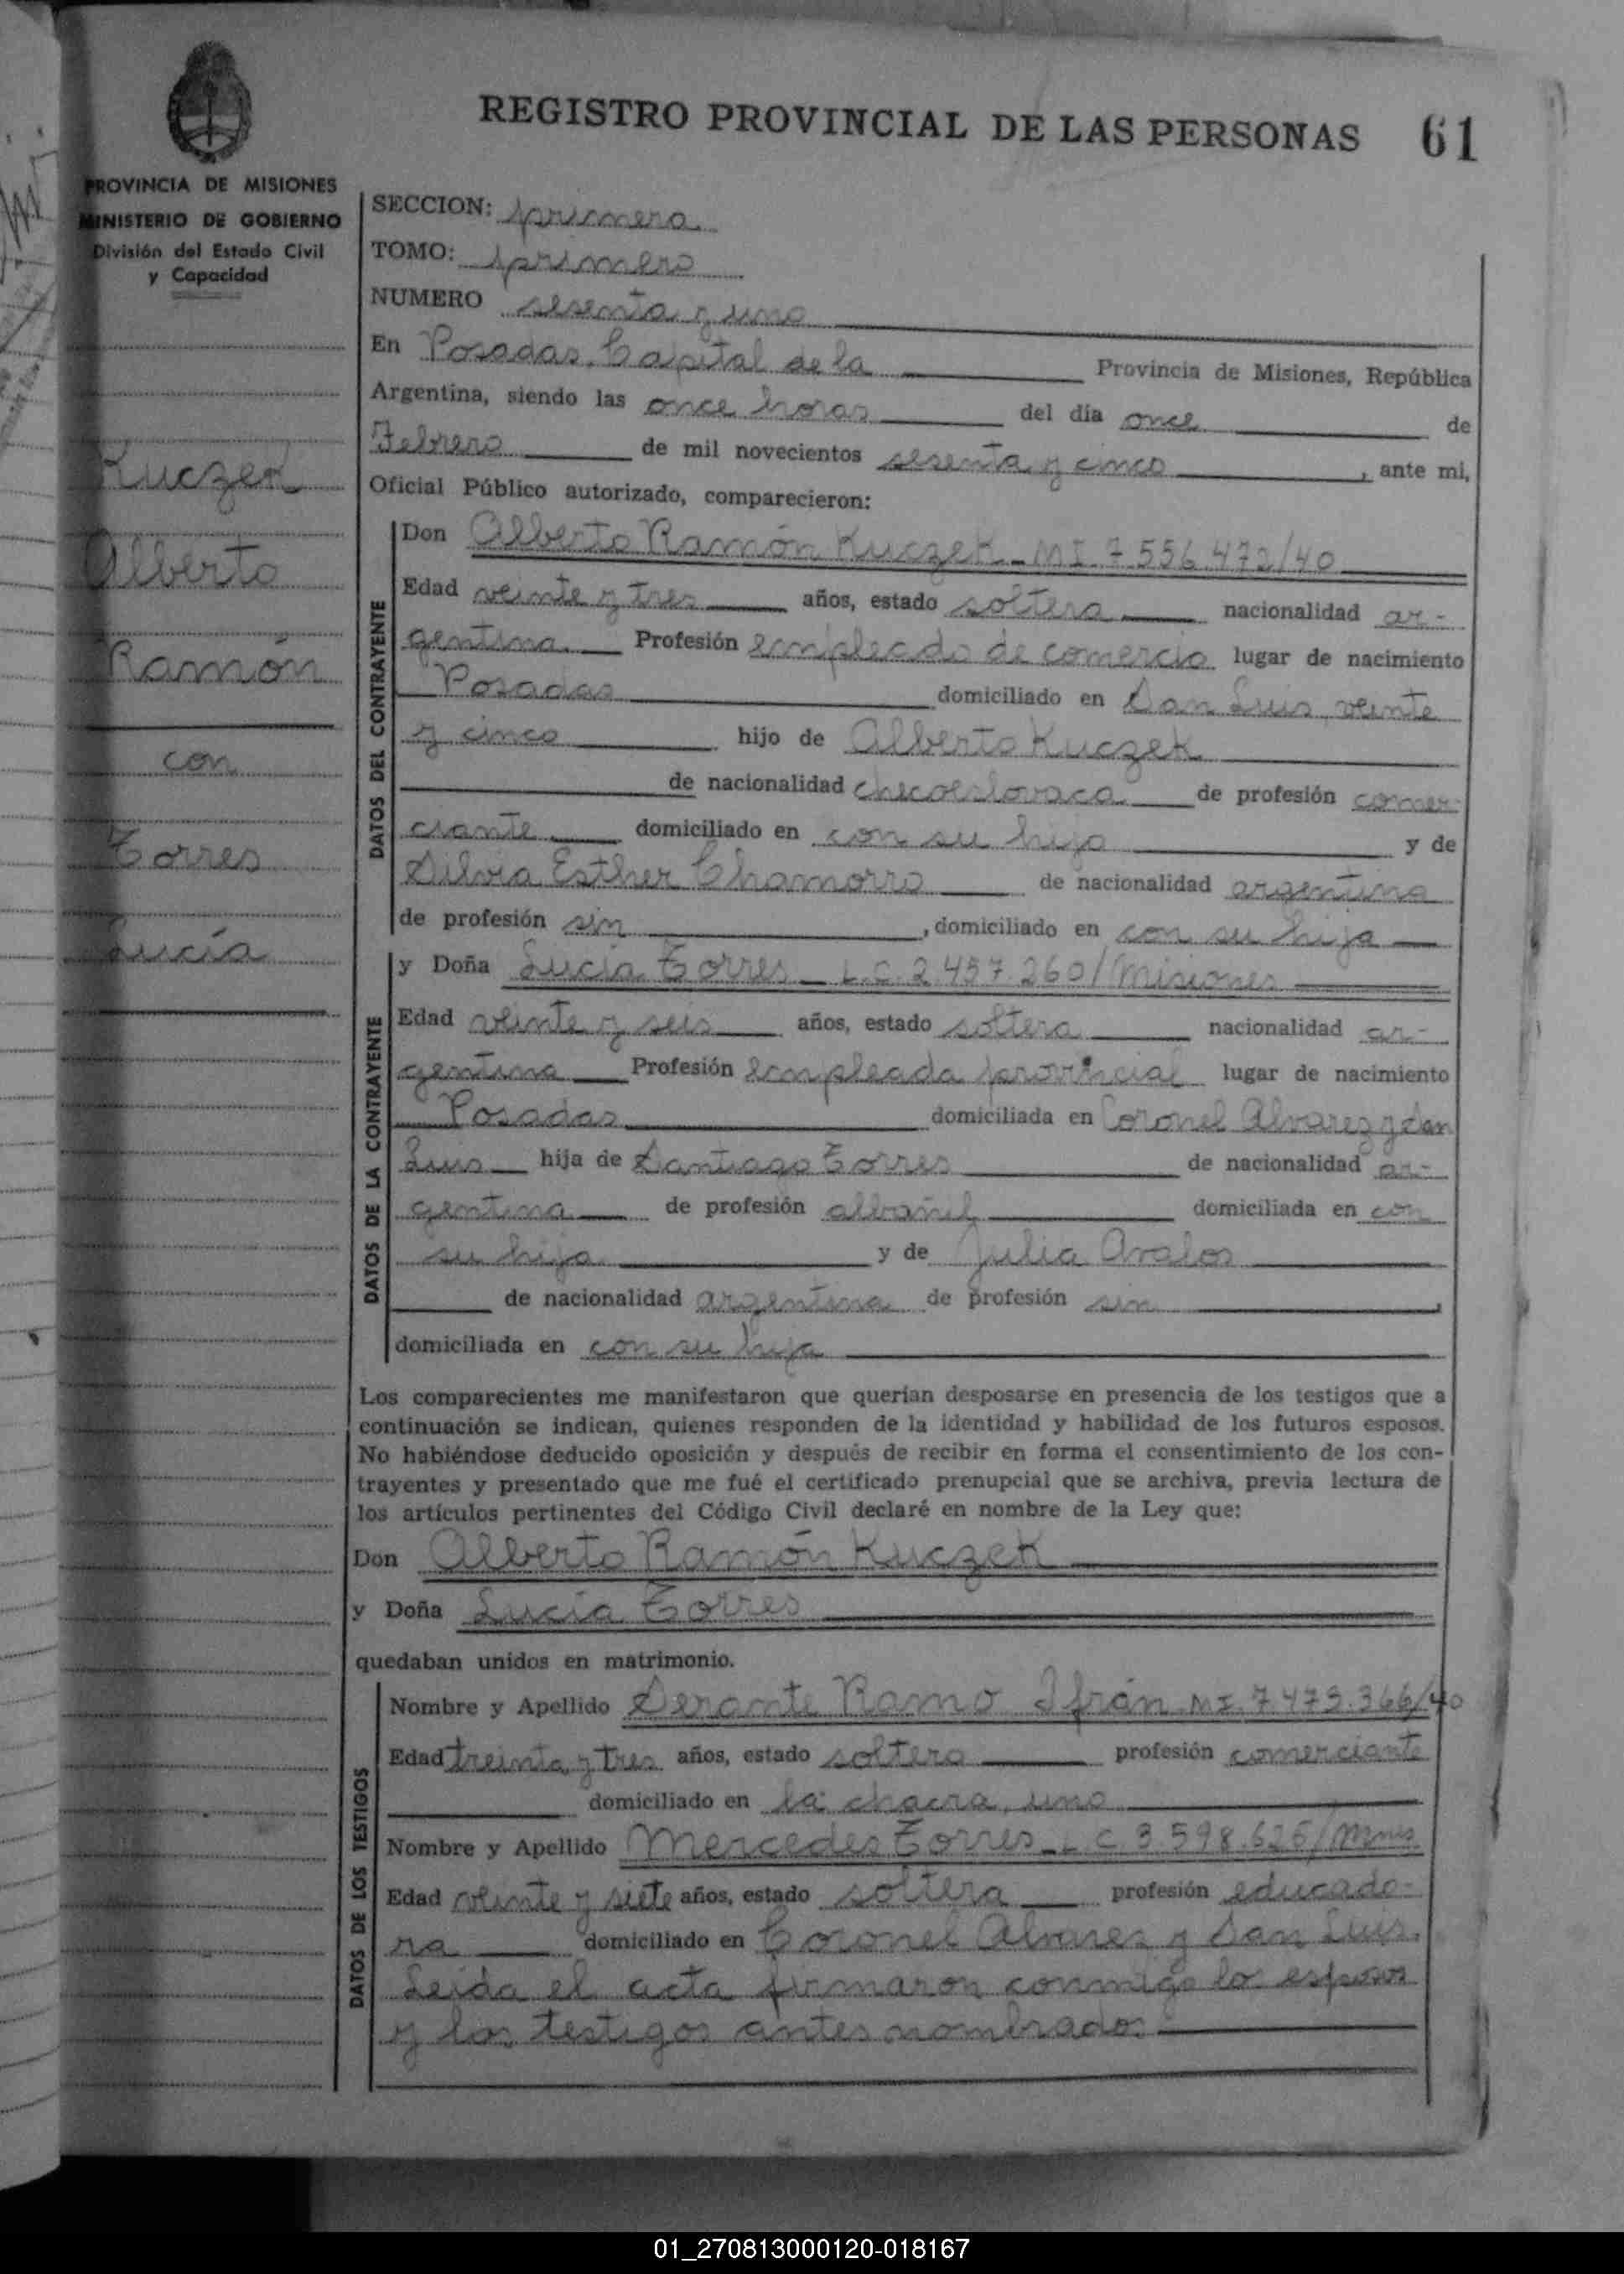 REGISTRO PROVINCIAL DE LAS PERSONAS 61
PROVINCIA DE MISIONES
MINISTERIO DE GOBIERNO
División del Estado Civil
y Capacidad
Kuczek
Alberto
Ramón
con
Torres
Lucía
SECCION: primera
TOMO: primero
NUMERO sesenta y uno
En Posadas, Capital de la Provincia de Misiones, República
Argentina, siendo las once horas del día once de
Febrero de mil novecientos sesenta y cinco, ante mi,
Oficial Público autorizado, comparecieron:
DATOS DEL CONTRAYENTE
Don Alberto Ramón Kuczek - M I. 7.556.472/40
Edad veinte y tres años, estado soltero nacionalidad ar-
gentina Profesión empleado de comercio lugar de nacimiento
Posadas domiciliado en San Luis, veinte
y cinco hijo de Alberto Kuczek
de nacionalidad checoeslovaca de profesión comer-
ciante domiciliado en con su hijo y de
Silvia Esther Chamorro de nacionalidad argentina
de profesión sin, domiciliado en con su hija
DATOS DE LA CONTRAYENTE
y Doña Lucía Torres - L.C. 2.457.260/Misiones
Edad veinte y seis años, estado soltera nacionalidad ar-
gentina Profesión empleada provincial lugar de nacimiento
Posadas domiciliada en Coronel Alvarez y San
Luis hija de Santiago Torres de nacionalidad ar-
gentina de profesión albañil domiciliada en con
su hija y de Julia Avalos
de nacionalidad argentina de profesión sin,
domiciliada en con su hija
Los comparecientes me manifestaron que querían desposarse en presencia de los testigos que a
continuación se indican, quienes responden de la identidad y habilidad de los futuros esposos.
No habiéndose deducido oposición y después de recibir en forma el consentimiento de los con-
trayentes y presentado que me fué el certificado prenupcial que se archiva, previa lectura de
los artículos pertinentes del Código Civil declaré en nombre de la Ley que:
Don Alberto Ramón Kuczek
y Doña Lucía Torres
quedaban unidos en matrimonio.
DATOS DE LOS TESTIGOS
Nombre y Apellido Ramo Ifrán M I. 7.479.366/40
Edad treinta y tres años, estado soltero profesión comerciante
domiciliado en la chacra, uno
Nombre y Apellido Mercedes Torres - L C 3.598.626/Mnes
Edad veinte y siete años, estado soltera profesión educado-
ra domiciliado en Coronel Alvarez y San Luis.
Leida el acta firmaron conmigo los esposos
y los testigos antes nombrados
01_270813000120-018167